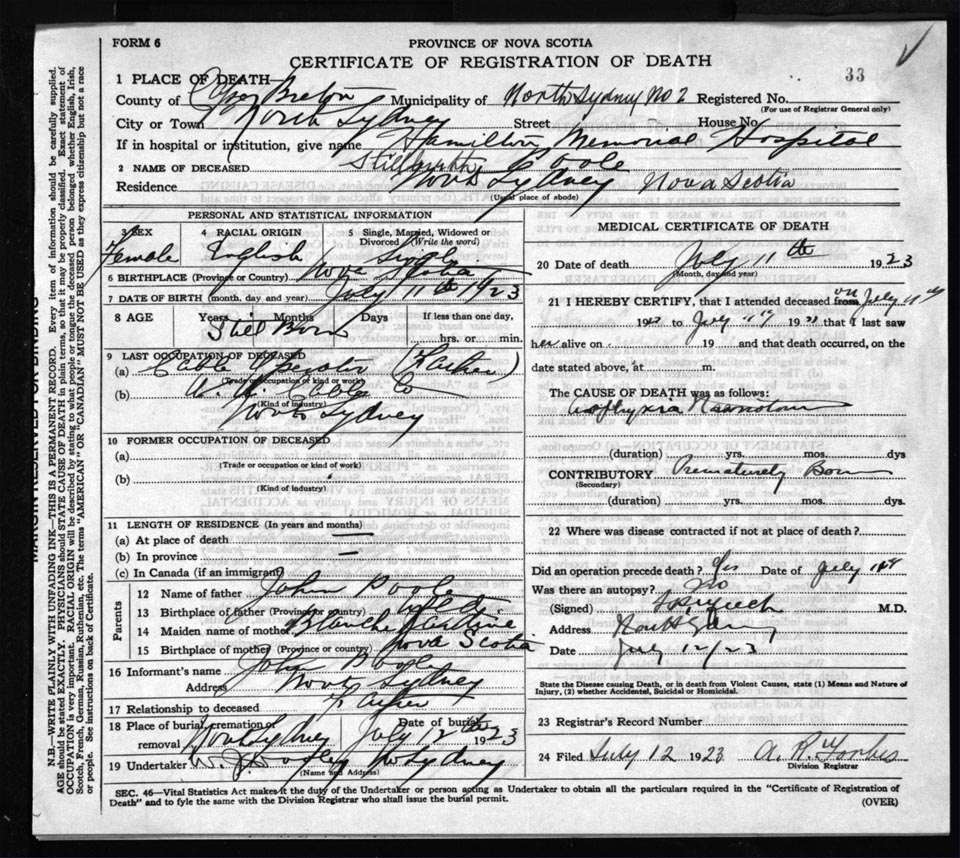 FORM 6
PROVINCE OF NOVA SCOTIA
CERTIFICATE OF REGISTRATION OF DEATH
33
1 PLACE OF DEATH—
County of Cape Breton Municipality of North Sydney No 2 Registered No.
(For use of Registrar General only)
City or Town North Sydney Street House No.
If in hospital or institution, give name Hamilton Memorial Hospital
2 NAME OF DECEASED Stillbirth Poole
Residence North Sydney Nova Scotia
(Usual place of abode)
PERSONAL AND STATISTICAL INFORMATION
3 SEX 4 RACIAL ORIGIN 5 Single, Married, Widowed or Divorced (Write the word)
Female English Single
6 BIRTHPLACE (Province or Country) Nova Scotia
7 DATE OF BIRTH (month, day and year) July 11th 1923
8 AGE Years Months Days If less than one day,
Still Born hrs. or min.
9 LAST OCCUPATION OF DECEASED
(a) Cable Operator (Father)
(Trade or occupation or kind of work)
(b) W. U. Cable Co
(Kind of industry)
North Sydney
10 FORMER OCCUPATION OF DECEASED
(a)
(Trade or occupation or kind of work)
(b)
(Kind of industry)
11 LENGTH OF RESIDENCE (In years and months)
(a) At place of death —
(b) In province —
(c) In Canada (if an immigrant)
Parents
12 Name of father John Poole
13 Birthplace of father (Province or country)
14 Maiden name of mother Blanche
15 Birthplace of mother (Province or country) Nova Scotia
16 Informant's name John Poole
Address North Sydney
17 Relationship to deceased Father
18 Place of burial, cremation or removal North Sydney Date of burial July 12th 1923
19 Undertaker W. J. Dooley No Sydney
(Name and Address)
MEDICAL CERTIFICATE OF DEATH
20 Date of death July 11th 1923
(Month, day and year)
21 I HEREBY CERTIFY, that I attended deceased from on July 11th
19 to July 11th 19 that I last saw
her alive on 19 and that death occurred, on the
date stated above, at m.
The CAUSE OF DEATH was as follows:
Asphyxia Neonatorum
(duration) yrs. mos. dys
CONTRIBUTORY Prematurely Born
(Secondary)
(duration) yrs. mos. dys.
22 Where was disease contracted if not at place of death?
Did an operation precede death? Yes Date of July 11th
Was there an autopsy? No
(Signed) M.D.
Address
Date July 12/23
State the Disease causing Death, or in death from Violent Causes, state (1) Means and Nature of Injury, (2) whether Accidental, Suicidal or Homicidal.
23 Registrar's Record Number
24 Filed July 12 1923 A. R. Forbes
Division Registrar
SEC. 46—Vital Statistics Act makes it the duty of the Undertaker or person acting as Undertaker to obtain all the particulars required in the "Certificate of Registration of
Death" and to fyle the same with the Division Registrar who shall issue the burial permit.
(OVER)
MARGIN RESERVED FOR BINDING
N.B.—WRITE PLAINLY WITH UNFADING INK—THIS IS A PERMANENT RECORD. Every item of information should be carefully supplied.
AGE should be stated EXACTLY. PHYSICIANS should STATE CAUSE OF DEATH in plain terms, so that it may be properly classified. Exact statement of
OCCUPATION is very important. RACIAL ORIGIN will be described by stating to what people or tongue the deceased person belonged whether English, Irish,
Scotch, French, German, Russian, Ruthenian, etc. The terms "AMERICAN" OR "CANADIAN" MUST NOT BE USED as they express citizenship but not a race
or people. See instructions on back of Certificate.